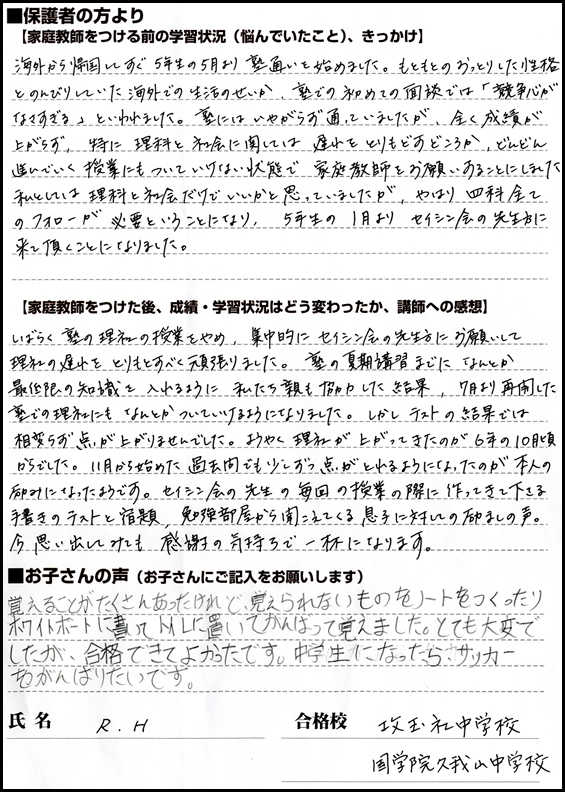 ■保護者の方より
【家庭教師をつける前の学習状況（悩んでいたこと）、きっかけ】
海外から帰国してすぐ5年生の5月より塾通いを始めました。もともとのおっとりした性格
とのんびりしていた海外での生活のせいか、塾での初めての面談では「競争心が
なさすぎる」といわれました。塾にはいやがらず通っていましたが、全く成績が
上がらず、特に理科と社会に関しては遅れをとりもどすどころか、どんどん
進んでいく授業にもついていけない状態で家庭教師をお願いすることにしました
私としては理科と社会だけでいいかと思っていましたが、やはり四科全て
のフォローが必要ということになり、5年生の1月よりセイシン会の先生方に
来て頂くことになりました。
【家庭教師をつけた後、成績・学習状況はどう変わったか、講師への感想】
しばらく塾の理社の授業をやめ、集中的にセイシン会の先生方にお願いして
理社の遅れをとりもどすべく頑張りました。塾の夏期講習までになんとか
最低限の知識を入れるように私たち親も協力した結果、7月より再開した
塾での理社にもなんとかついていけるようになりました。しかしテストの結果では
相変らず点が上がりませんでした。ようやく理社が上がってきたのが6年の10月頃
からでした。11月から始めた過去問でも少しずつ点がとれるようになったのが本人の
励みになったようです。セイシン会の先生の毎回の授業の際に作ってきて下さる
手書きのテストと宿題、勉強部屋から聞こえてくる息子に対しての励ましの声。
今思い出してみても感謝の気持ちで一杯になります。
■お子さんの声（お子さんにご記入をお願いします）
覚えることがたくさんあったけれど、覚えられないものをノートをつくったり
ホワイトボートに書いてトイレに置いてがんばって覚えました。とても大変で
したが、合格できてよかったです。中学生になったらサッカー
をがんばりたいです。
氏名 R.H 合格校 攻玉社中学校
国学院久我山中学校